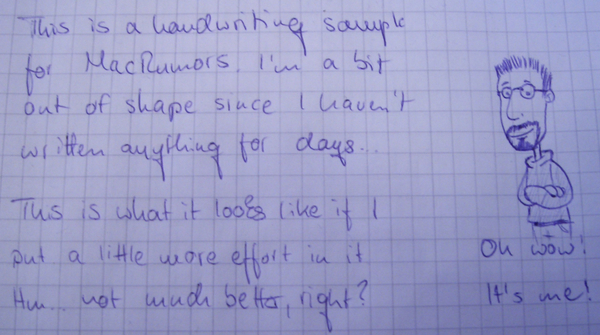 This is a handwriting sample
for MacRumors. I'm a bit
out of shape since I haven't
written anything for days...
This is what it looks like if I
put a little more effort in it
Hm... not much better, right?
Oh wow!
It's me!